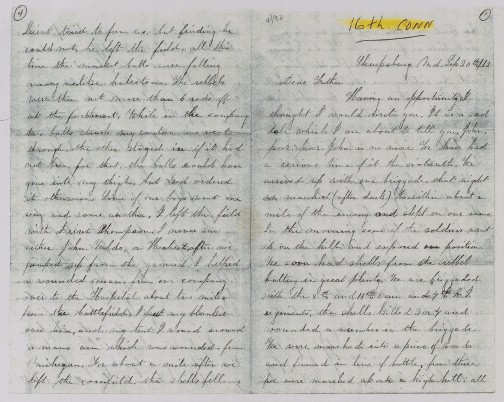 1
16th CONN
Sharpsburg Md. Sep 30th/62
Dear Father
Having an opportunity I
thought I would write you. It is a sad
tale which I am about to tell you, John,
poor dear John is no more. We have had
a serious time of it the entire We
arrived up with our brigade that night
we marched (after dark) to within about a
mile of the enemy and slept on our arms
In the morning some of the soldiers went
up on the hill and exposed our position
We soon had shells from the rebel
battery in great plenty. We are brigaded
with the 8th and 11th Conn and 4th R. I.
regiments, the shells killed 3 or 4 and
wounded a number in the brigade
We were marched into a piece of woods
and formed in line of battle, from there
we were marched up onto a high hill, all
4
Lieut tried to form us, but finding he
could not, he left the field. All this
time the musket balls were falling
among us like hailstones. The rebels
were then not more than 6 rods off
at the furthest. While in the company
two balls struck my canteen one went
through the other stayed in if it had
not been for that, the balls would have
gone into my thigh but God ordered
it otherwise. Some of our boys went one
way and some another. I left the field
with Lieut Thompson. I never saw
either John, or after we
jumped up from the ground. I helped
a wounded man from our company
over to the Hospital about two miles
from the battlefield. I put my blanket
over him, and my tent I wound around
a man's arm which was wounded, from
Michigan. For about a mile after we
left the cornfield the shells fell